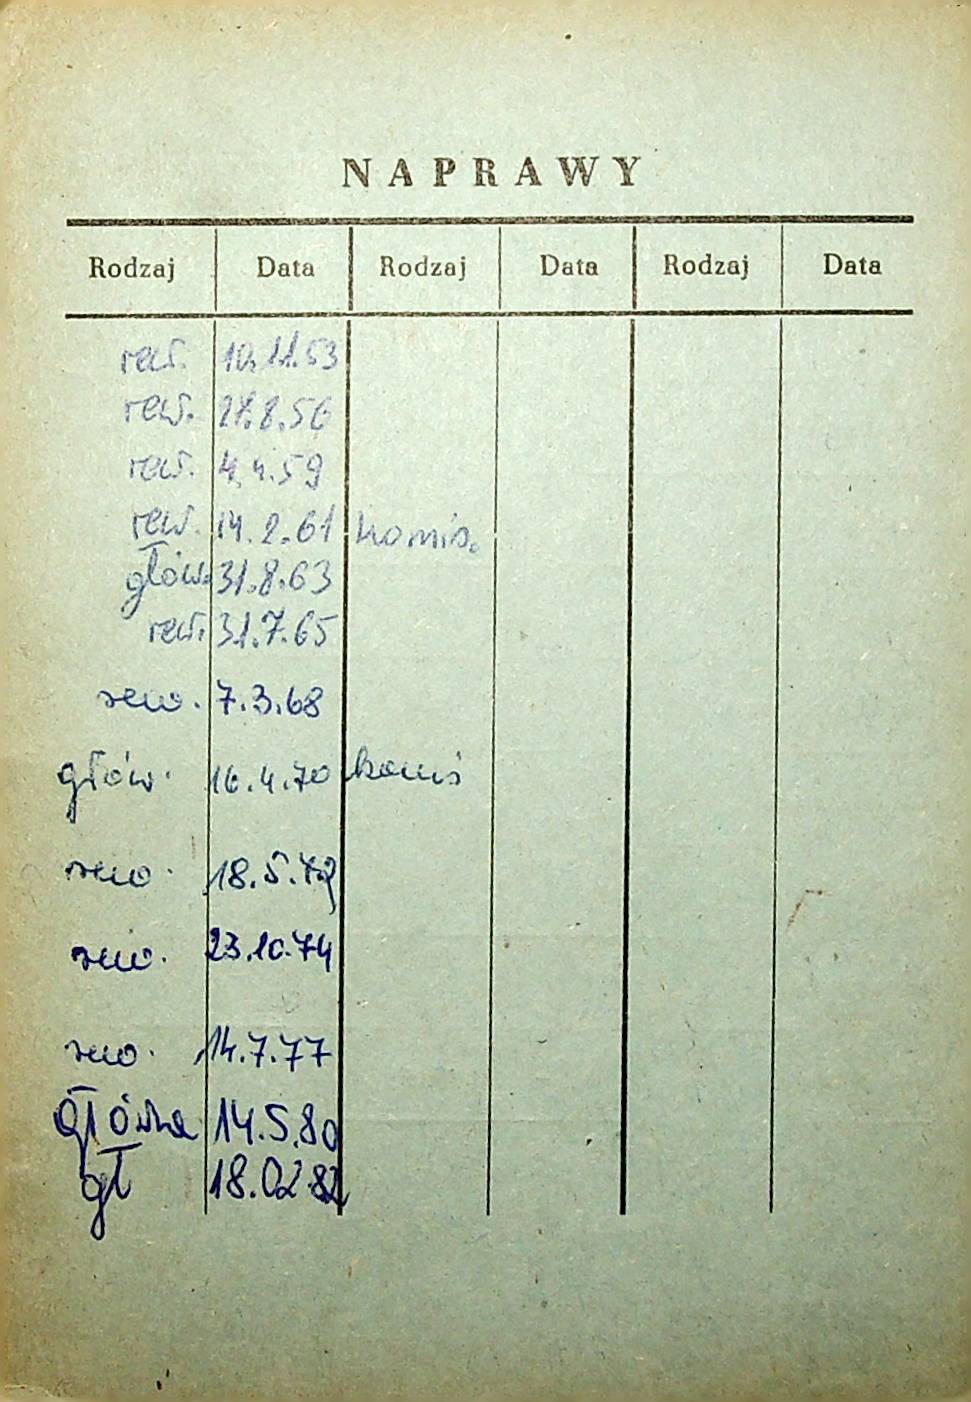 NAPRAWY
Rodzaj Data Rodzaj Data Rodzaj Data
rew. 10.11.53
rew. 27.8.56
rew. 4.4.59
rew. 14.2.61 komis.
główn. 31.8.63
rew. 31.7.65
rew. 7.3.68
główn. 16.4.70 komis
rew. 18.5.72
rew. 23.10.74
rew. 14.7.77
Główna 14.5.80
gł 18.02.82